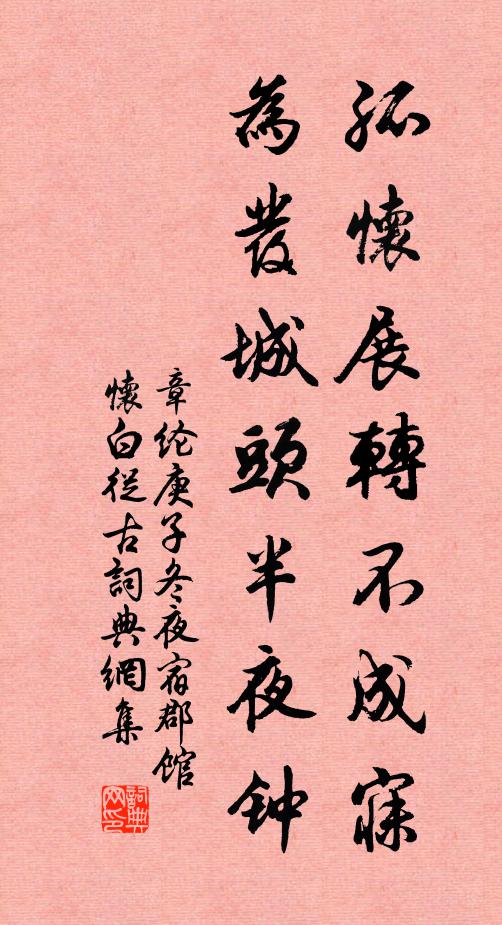 孤懷展轉不成寐
為發城頭半夜钟
章纶庚子冬夜宿郡館
懷白從古詞典網集
詞典网印